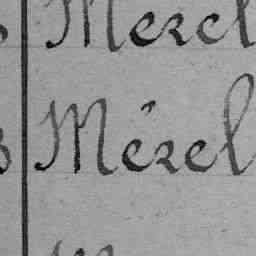 Mézel
Mézel